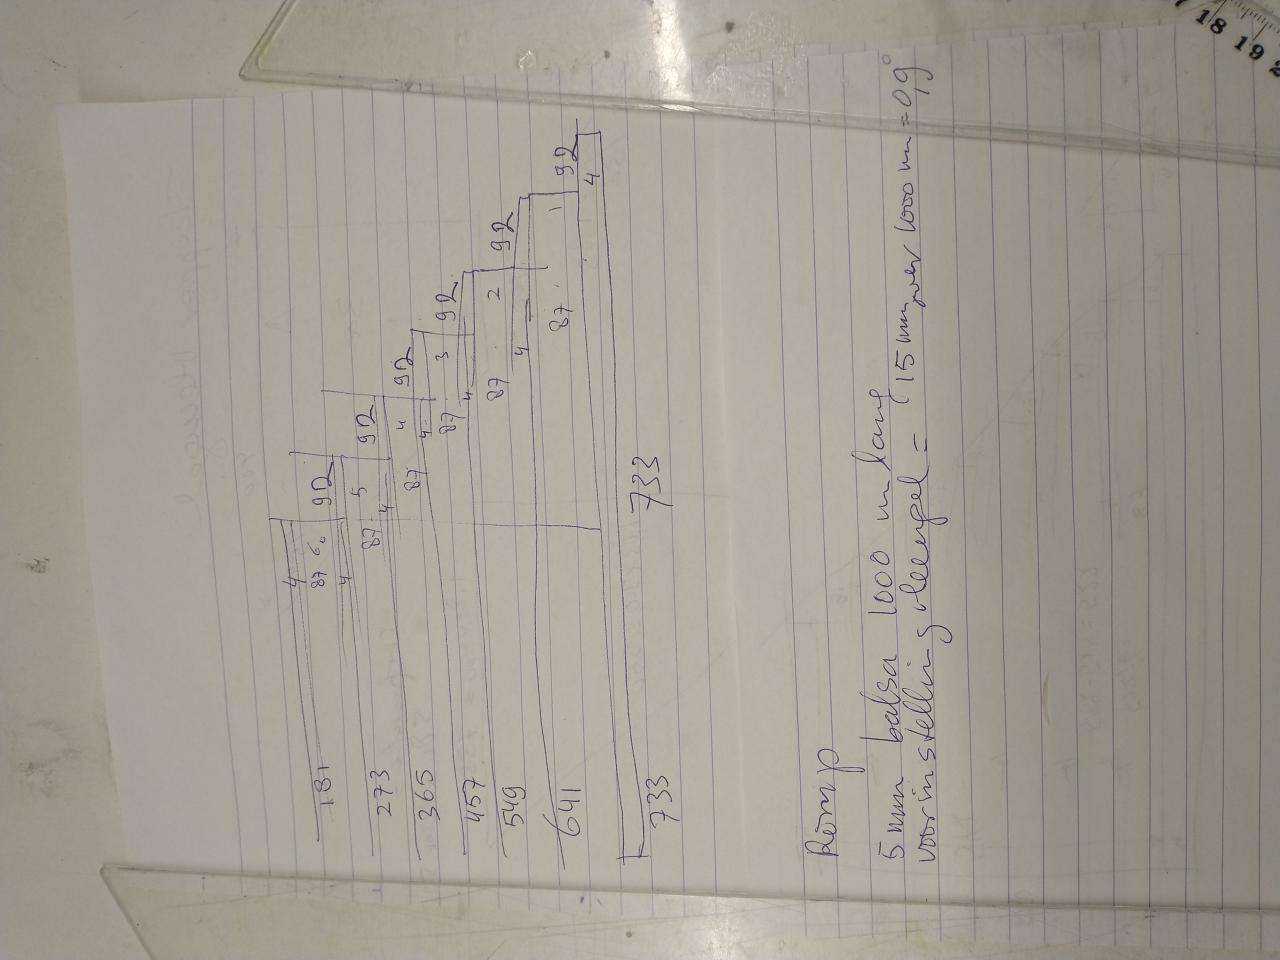 4
87 6
181 4 92
87 5
273 4 92
4
365 87 4 92
3
457 87 4 92
2
549 87 4 92
1
641 87 92
4
733 733
Romp
5 mm balsa 1000 m lang
voorinstelling vleugel = 15 mm over 1000 m = 0,9°
17 18 19 2